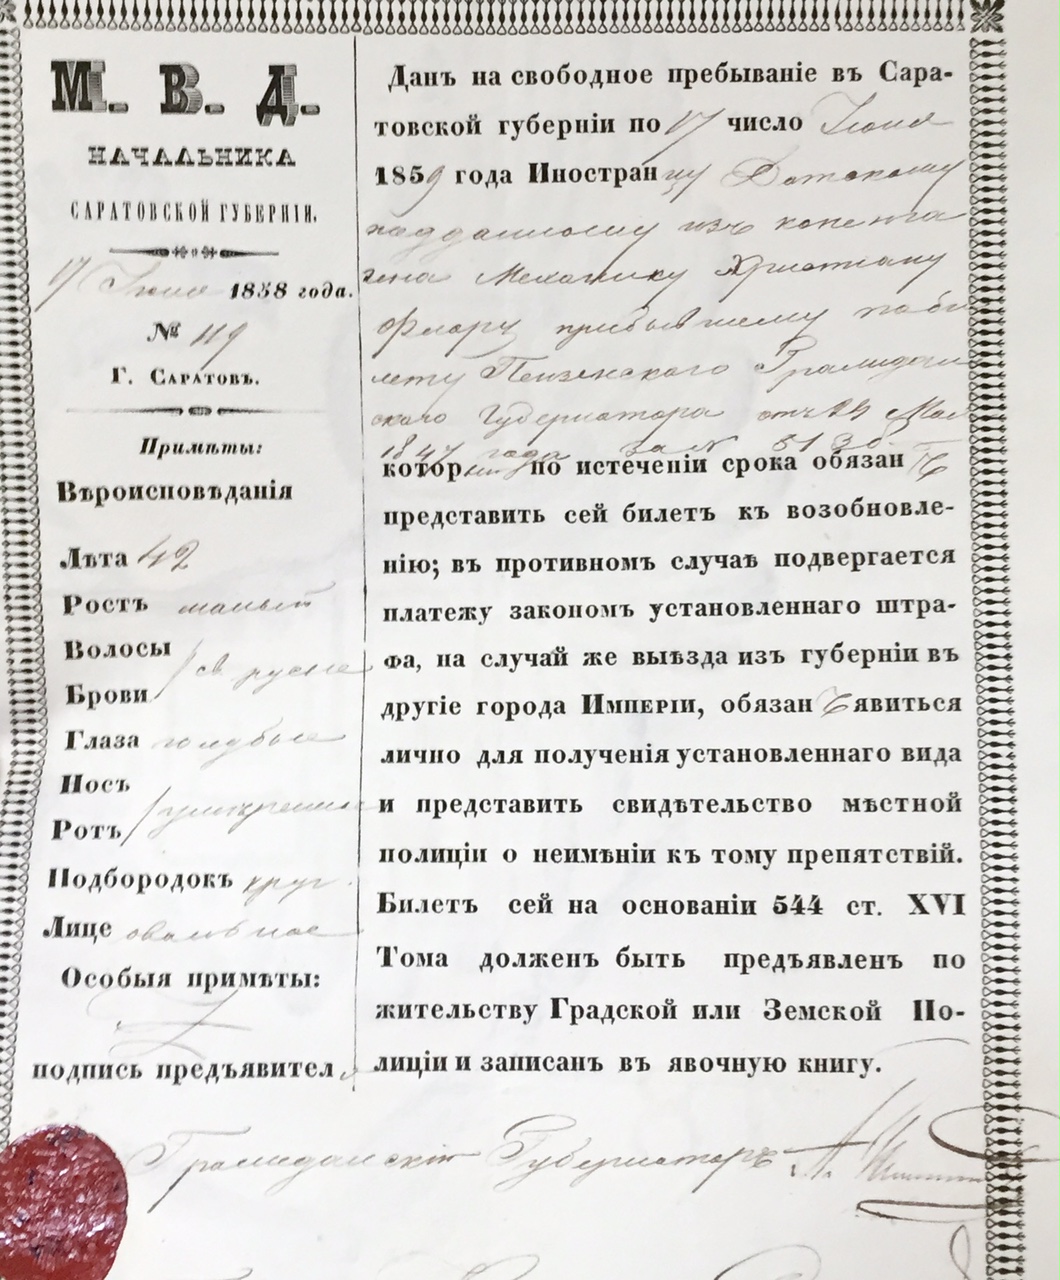 М. В. Д.
НАЧАЛЬНИКА
САРАТОВСКОЙ ГУБЕРНІИ.
17 Іюня 1858 года.
№ 119
Г. Саратовъ.
Примѣты:
Вѣроисповѣданія
Лѣта 42
Ростъ малый
Волосы
св русые
Брови
Глаза голубые
Носъ
умѣренные
Ротъ
Подбородокъ круг.
Лице овальное
Особыя примѣты:
подпись предъявител
Данъ на свободное пребываніе въ Сара-
товской губерніи по 17 число Іюня
1859 года Иностранцу Датскому
подданному изъ копенга
гена Механику Христіану
прибывшему по би
лету Пензенскаго Гражданс
скаго Губернатора отъ 24 Мая
1847 года за N
который по истеченіи срока обязанъ
представить сей билетъ къ возобновле-
нію; въ противномъ случаѣ подвергается
платежу закономъ установленнаго штра-
фа, на случай же выѣзда изъ губерніи въ
другіе города Имперіи, обязанъ явиться
лично для полученія установленнаго вида
и представить свидѣтельство мѣстной
полиціи о неимѣніи къ тому препятствій.
Билетъ сей на основаніи 544 ст. XVI
Тома долженъ быть предъявленъ по
жительству Градской или Земской По-
лиціи и записанъ въ явочную книгу.
Гражданскій Губернаторъ